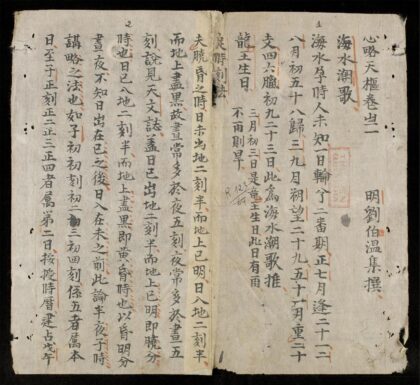 心略天樞卷
明劉伯温集撰
海水潮歌
海水孕時人未知日輪了一番期正七月逢二十一二
八月初五十八歸三九月朔望二十九五十一月重二十
文四六臘初九二十三日此為海水潮歌推
龍王生日
三月初三日是龍王生日此日有雨
不雨則旱
夫曉昏之時日未出地二刻半而地上已明日入地二刻半
而地上盡黑故晝常多於夜五刻夜常多於晝五
刻說見天文誌盖日已出地二刻半而地上已明即曉分
時也日已入地二刻半而地上盡黑即黄昏時也以昏明分
晝夜不知日出在已之後日入在未之前此論半夜子時
講略之法也如子初初刻初二初三初四刻係五者屬本
日至子正刻正二正三正四者屬第二日按授時曆建占戊午